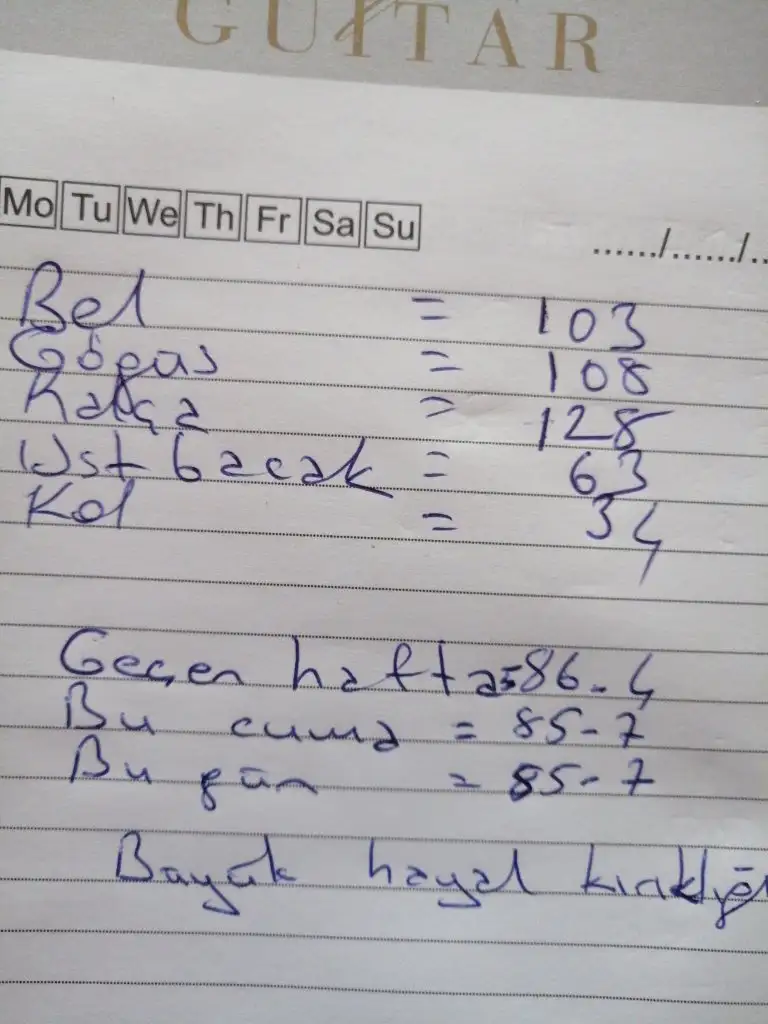 GUITAR
Mo Tu We Th Fr Sa Su
....../....../..
Bel = 103
Göğüs = 108
Kalça = 128
Üst bacak = 63
Kol = 34
Geçen hafta = 86.4
Bu cuma = 85-7
Bu gün = 85-7
Büyük hayal kırıklığı